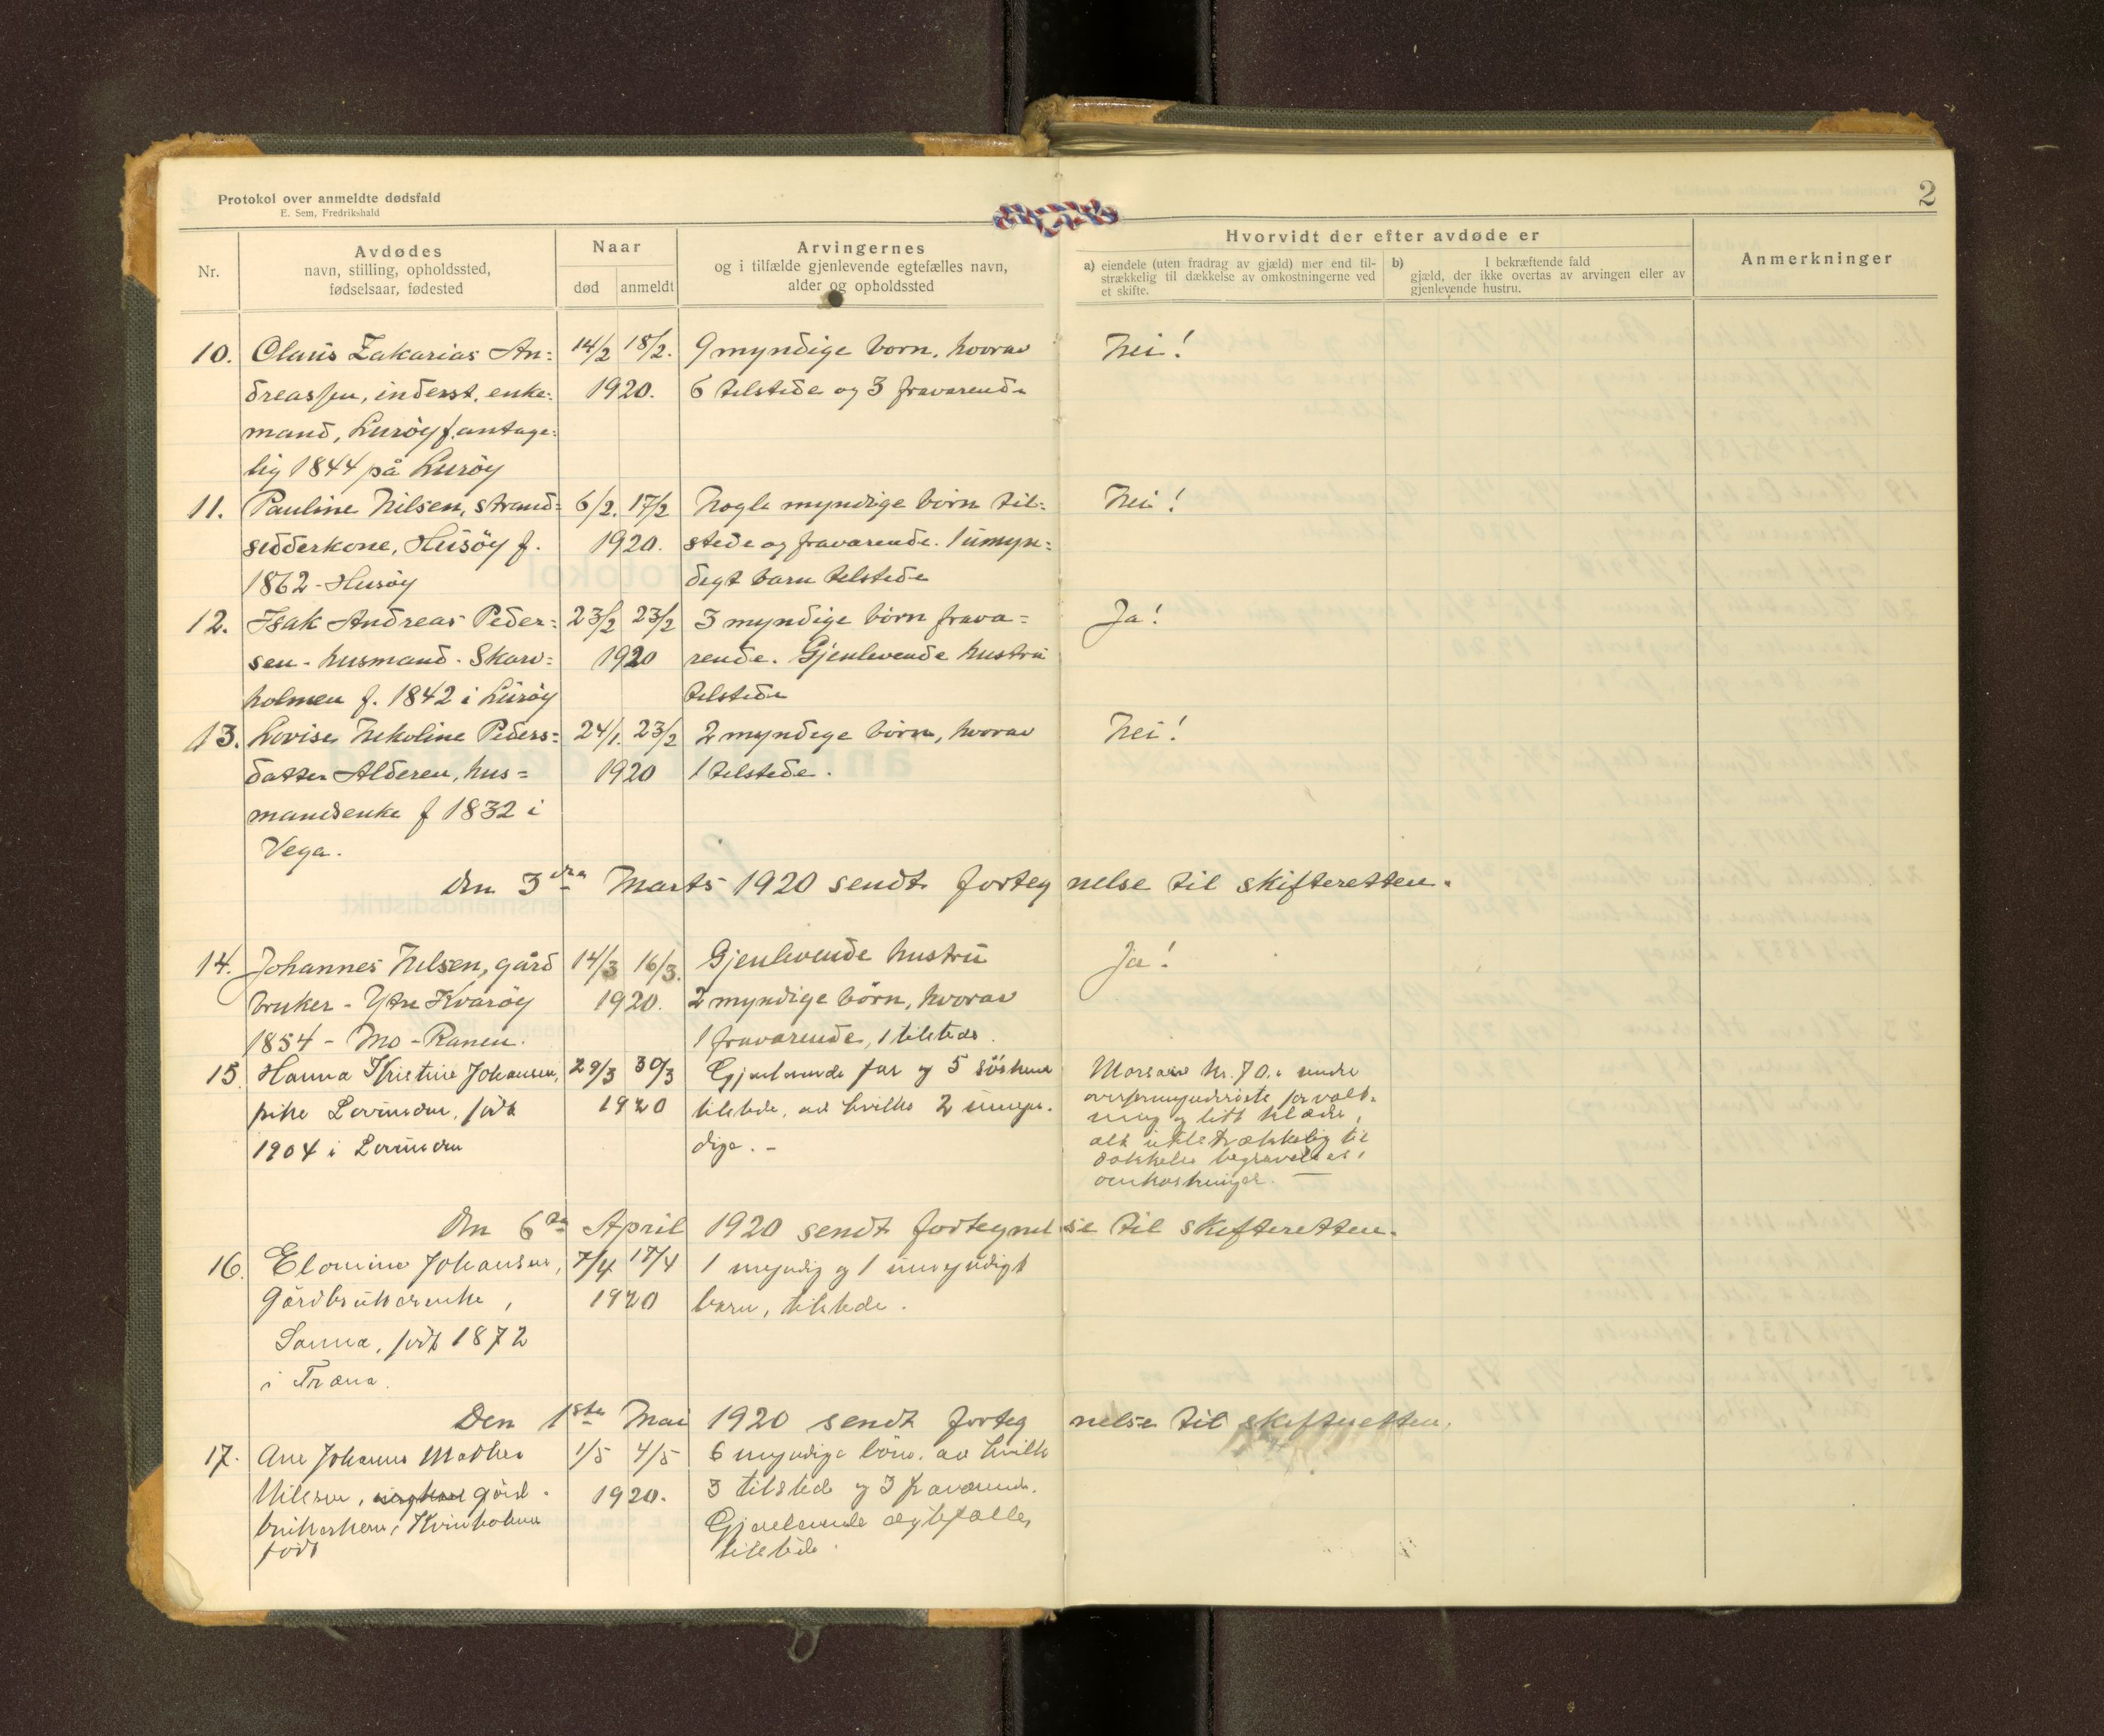 Protokol over anmeldte dødsfald
E. Sem, Fredrikshald
2
Nr.
Avdødes
navn, stilling, opholdssted,
fødselsaar, fødested
Naar
død
anmeldt
Arvingernes
og i tilfælde gjenlevende egtefælles navn,
alder og opholdssted
Hvorvidt der efter avdøde er
a) eiendele (uten fradrag av gjæld) mer end til-
strækkelig til dækkelse av omkostningerne ved
et skifte.
b) I bekræftende fald
gjæld, der ikke overtas av arvingen eller av
gjenlevende hustru.
Anmerkninger
10. Olaus Zakarias An= 14/2 18/2. 9 myndige born, hvorav Nei!
dreassen, inderst, enke= 1920. 6 tilstede og 3 fraværende
mand, Lurøy f. antage=
lig 1844 på Lurøy
11. Pauline Nilsen, strand= 6/2. 17/2 Nogle myndige børn til= Nei!
sidderkone, Husøy f. 1920. stede og fraværende. 1 umyn=
1862 - Husøy digt barn tilstede
12. Isak Andreas Peder= 23/2 23/2 3 myndige børn fravæ= Ja!
sen - husmand - Skarv= 1920 rende. Gjenlevende hustru
holmen f. 1842 i Lurøy tilstede
13. Lovise Nekoline Peders= 24/1. 23/2 2 myndige børn, hvorav Nei!
datter Alderen, hus= 1920 1 tilstede.
mandsenke f 1832 i
Vega.
Den 3dra Marts 1920 sendt fortegnelse til skifteretten.
14. Johannes Nilsen, gård 14/3 16/3. Gjenlevende hustru Ja!
bruker - Ytre Kvarøy 1920. 2 myndige børn, hvorav
1854 - Mo - Ranen. 1 fraværende, 1 tilstede.
15. Hanna Kristine Johansen, 29/3 30/3 Gjenlevende far og 5 søskend
pike Lovunden, født 1920 tilstede, av hvilke 2 umyn-
1904 i Lovunden dige. -
kr. 70. i under
overformynderiets forvalt-
ning og litt klæder,
alt utilstrækkelig til
dækkelse begravelses,
omkostninger. —
Den 6te April 1920 sendt fortegnelse til skifteretten.
16. Elomine Johansen, 7/4 17/4 1 myndig og 1 umyndigt
Gårdbrukerenke, 1920 barn, tilstede.
Sanna, født 1872
i Træna.
Den 1ste Mai 1920 sendt fortegnelse til skifteretten.
17. Ane Johanna Mathea 1/5 4/5 6 myndige børn, av hvilke
Nilsen, gård- 1920. 3 tilstede og 3 fraværende.
brukerkone, Kvinholmen Gjenlevende ægtefælle,
født tilstede.